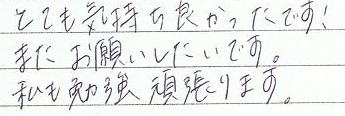 とても気持ち良かったです!
またお願いしたいです。
私も勉強頑張ります。